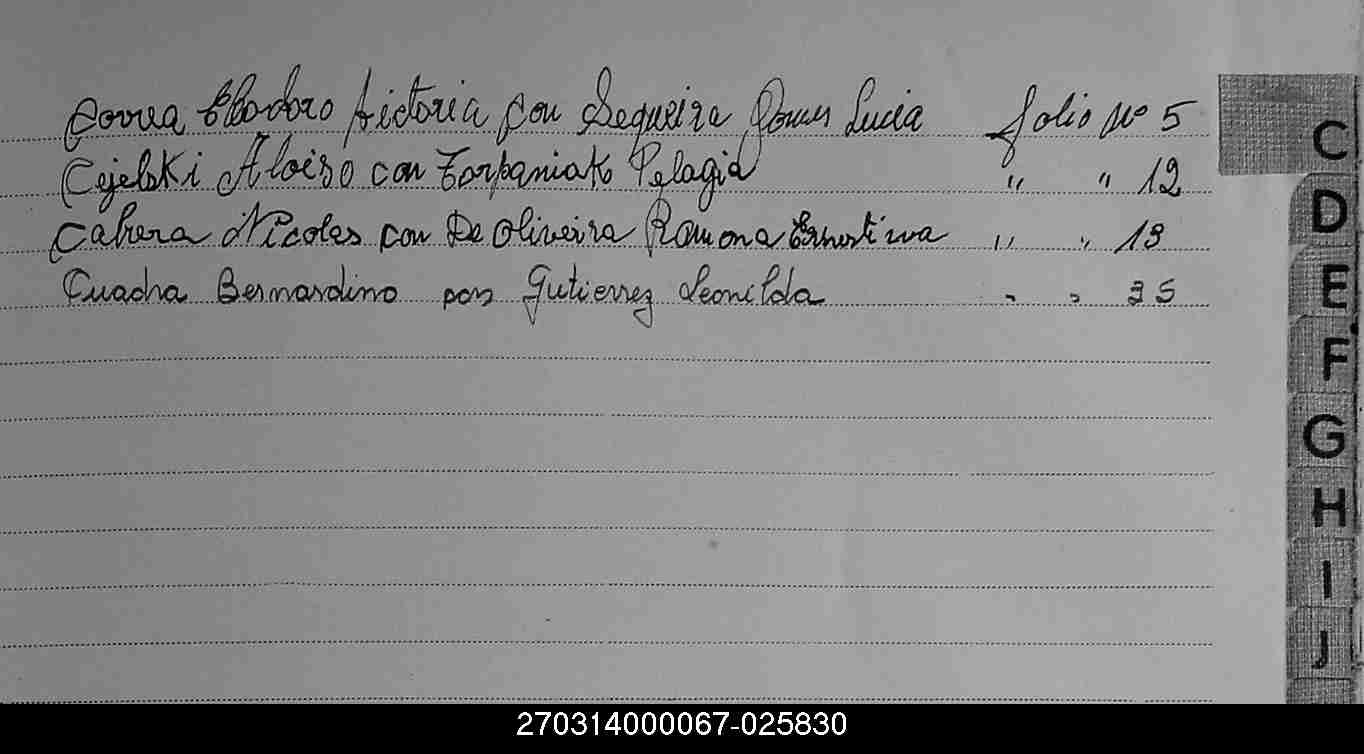 Correa Eleodoro Victoria con Sequeira Gomes Lucia folio Nº 5
Cejelski Aloizo con Zorpaniak Pelagia " " 12
Cabrera Nicoles con De Oliveira Ramona Ernestina " " 13
Cuadra Bernardino con Gutierrez Leonilda " " 35
C
D
E
F
G
H
I
J
270314000067-025830